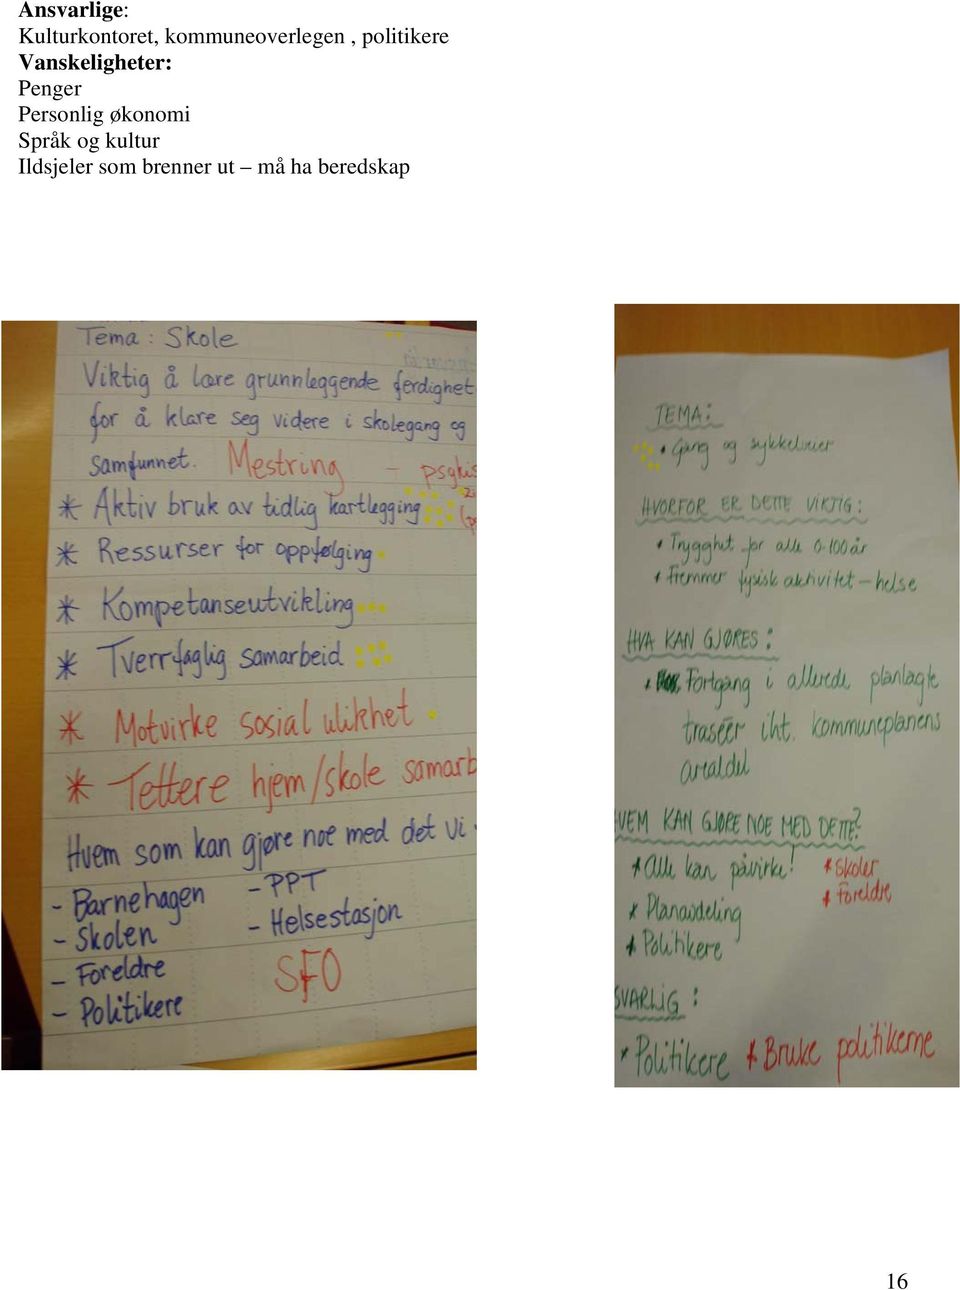 Ansvarlige:
Kulturkontoret, kommuneoverlegen , politikere
Vanskeligheter:
Penger
Personlig økonomi
Språk og kultur
Ildsjeler som brenner ut – må ha beredskap
Tema: Skole
Viktig å lære grunnleggende ferdighet
for å klare seg videre i skolegang og
samfunnet. Mestring - psykis
* Aktiv bruk av tidlig kartlegging
* Ressurser for oppfølging
* Kompetanseutvikling
* Tverrfaglig samarbeid
* Motvirke sosial ulikhet
* Tettere hjem/skole samarb
Hvem som kan gjøre noe med det vi
- Barnehagen - PPT
- Skolen - Helsestasjon
- Foreldre SFO
- Politikere
TEMA:
* Gang og sykkelveier
HVORFOR ER DETTE VIKTIG:
* Trygghet for alle 0-100 år
* Fremmer fysisk aktivitet – helse
HVA KAN GJØRES:
* Fortgang i allerede planlagte
traséer iht. kommuneplanens
arealdel
HVEM KAN GJØRE NOE MED DETTE?
* Alle kan påvirke! * Skoler
* Planavdeling * Foreldre
* Politikere
SVARLIG:
* Politikere * Bruke politikerne
16